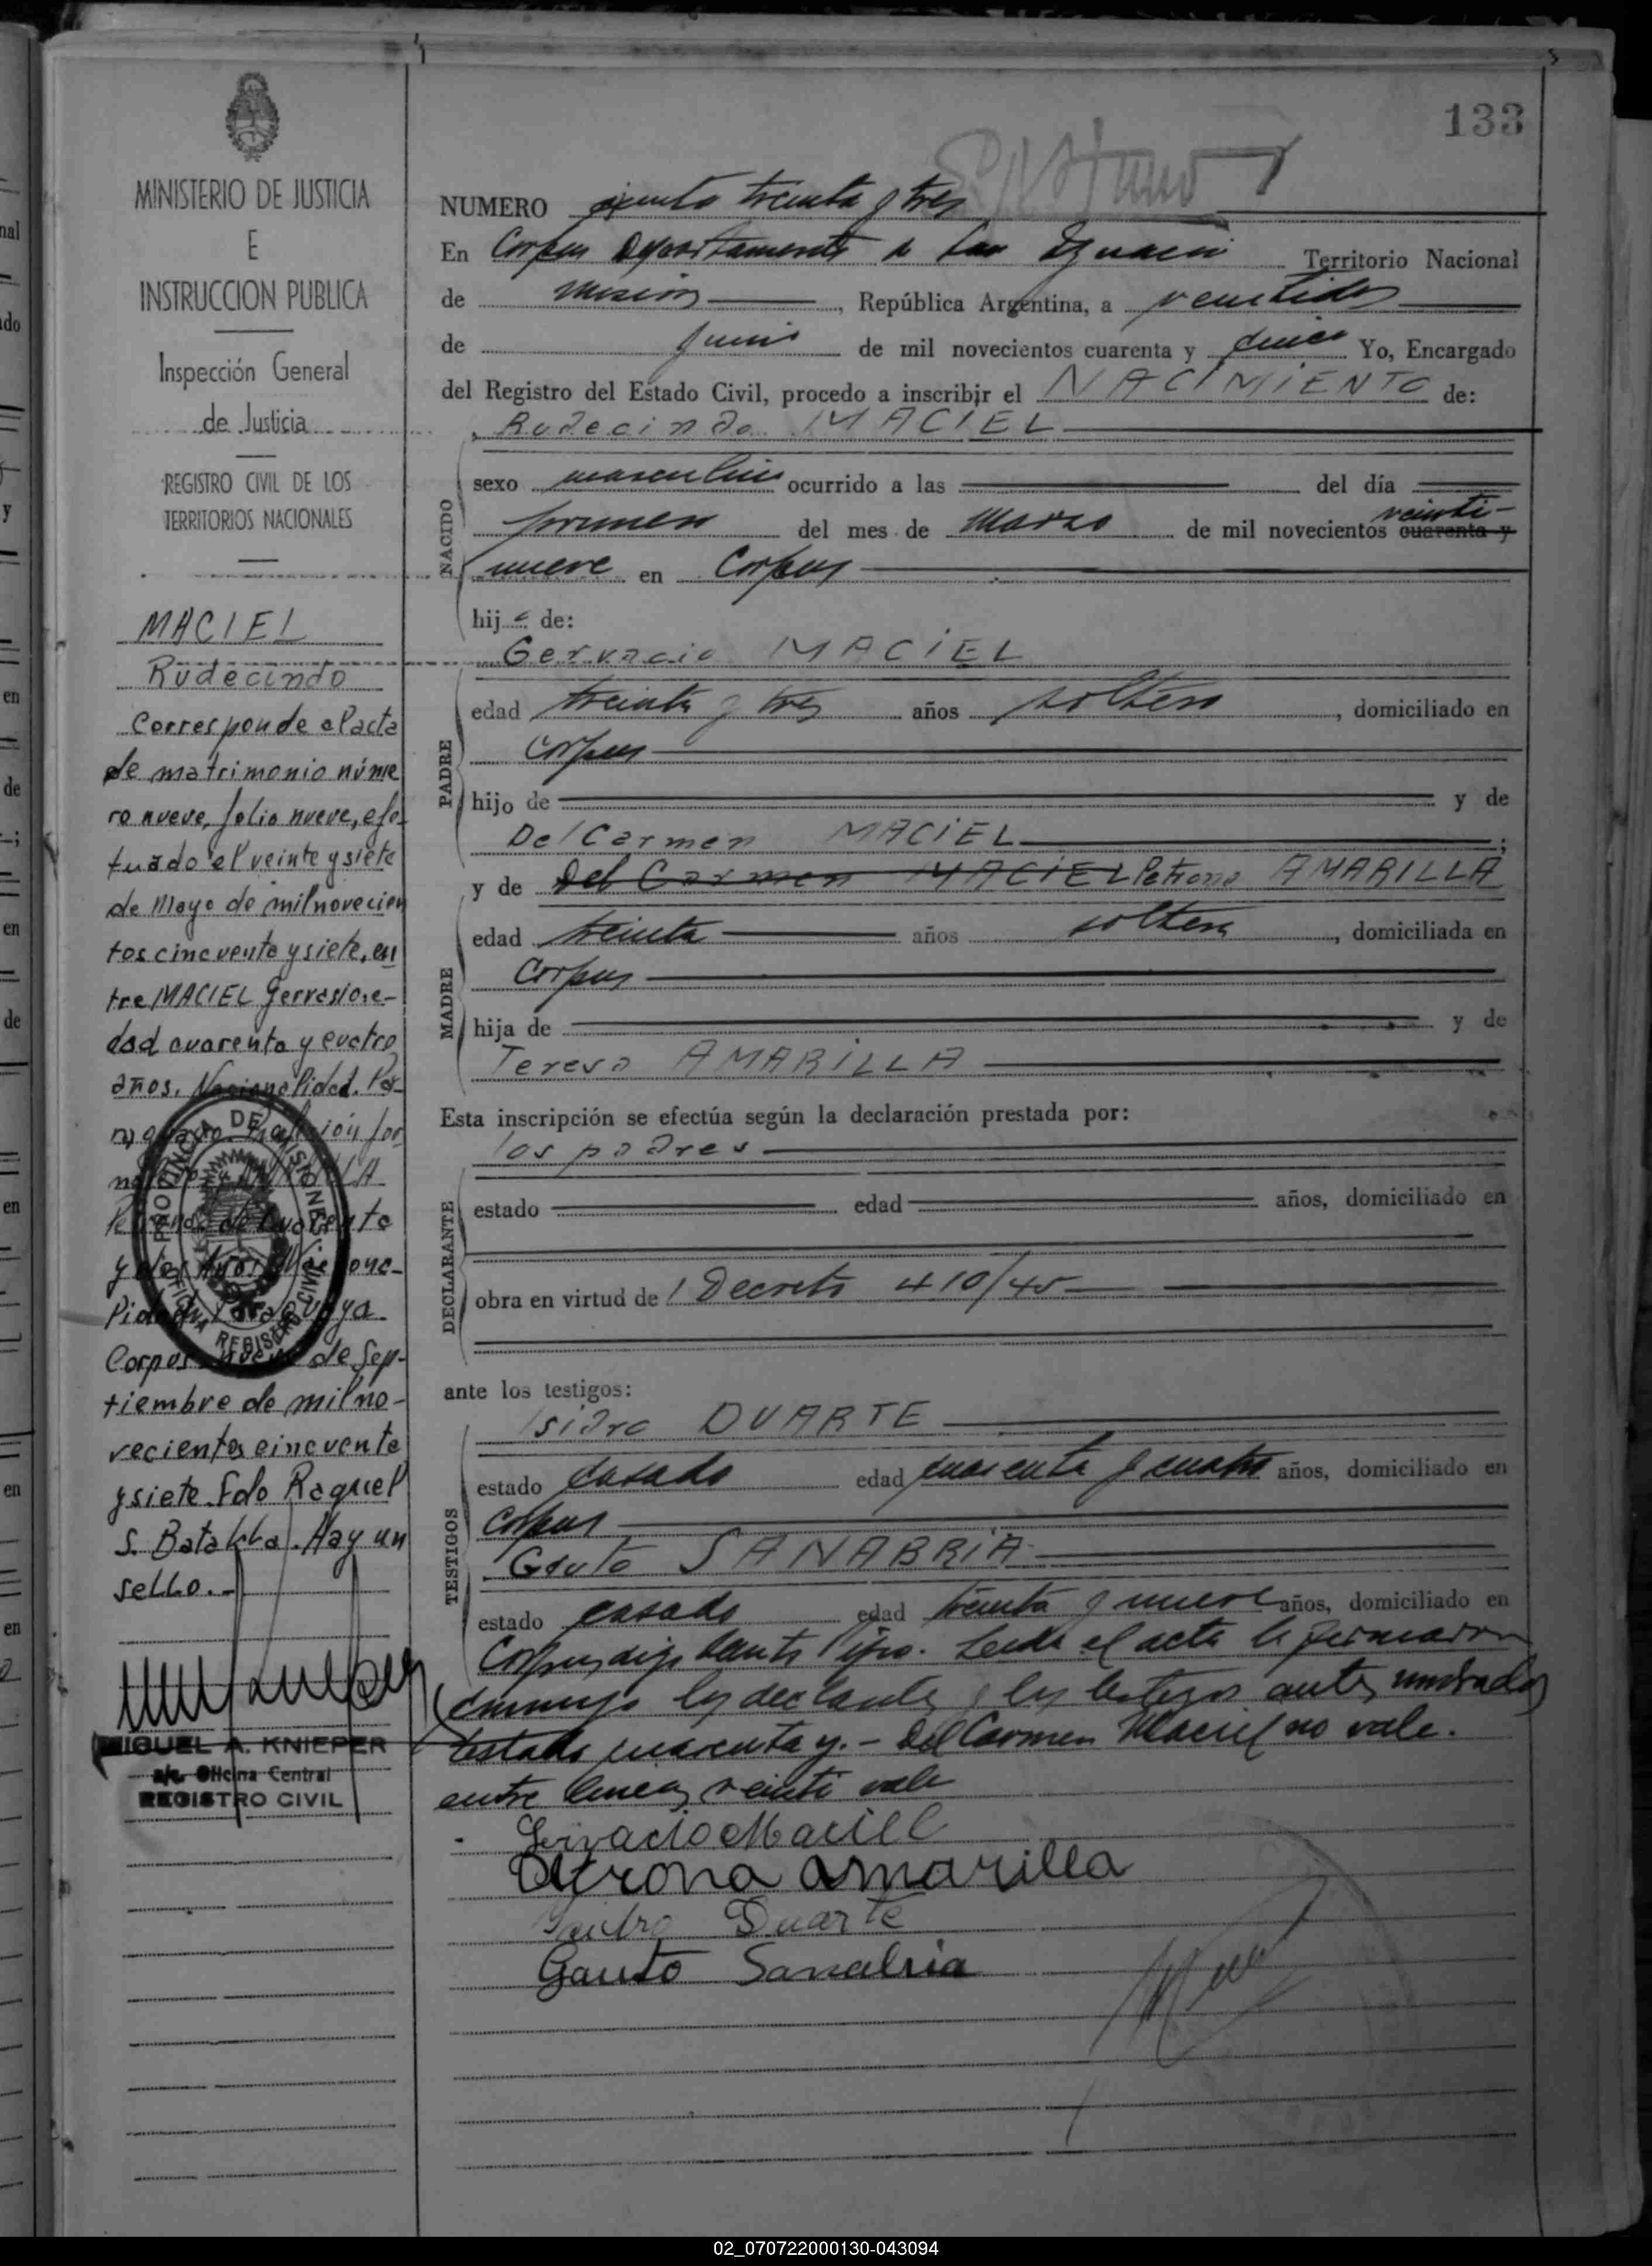 133
MINISTERIO DE JUSTICIA
E
INSTRUCCION PUBLICA
Inspección General
de Justicia
REGISTRO CIVIL DE LOS
TERRITORIOS NACIONALES
MACIEL
Rudecindo
Corresponde al acta
de matrimonio núme
ro nueve, folio nueve, efe-
tuado el veinte y siete
de Mayo de mil novecien
tos cincuenta y siete, en
tre MACIEL Gervasio, e-
dad cuarenta y cuatro
años. Nacionalidad. Pa-
Corpus nueve de Sep-
tiembre de mil no-
vecientos cincuenta
y siete. Fdo Raquel
S. Batalla. Hay un
sello.-
PROVINCIA DE MISIONES
OFICINA REGISTRO CIVIL
MIGUEL A. KNIEPER
a/c. Oficina Central
REGISTRO CIVIL
NUMERO ciento treinta y tres
En Corpus Departamento de San Ignacio Territorio Nacional
de Misiones, República Argentina, a veintidos
de Junio de mil novecientos cuarenta y cinco Yo, Encargado
del Registro del Estado Civil, procedo a inscribir el NACIMIENTO de:
Rudecindo MACIEL
NACIDO
sexo masculino ocurrido a las del día
primero del mes de Marzo de mil novecientos cuarenta y veinti-
nueve en Corpus
hijo de:
Gervacio MACIEL
PADRE
edad treinta y tres años soltero, domiciliado en
Corpus
hijo de y de
Del Carmen MACIEL;
y de Del Carmen MACIEL Petrona AMARILLA
MADRE
edad treinta años soltera, domiciliada en
Corpus
hija de y de
Teresa AMARILLA
Esta inscripción se efectúa según la declaración prestada por:
los padres
DECLARANTE
estado edad años, domiciliado en
obra en virtud de l Decreto 410/45
ante los testigos:
Isidro DUARTE
TESTIGOS
estado casado edad cuarenta y cuatro años, domiciliado en
Corpus
Gauto SANABRIA
estado casado edad treinta y nueve años, domiciliado en
Corpus, digo Leida el acta la firmaron
conmigo los declarantes y los testigos antes nombrados
testado cuarenta y.- Del Carmen Maciel no vale.
entre lineas veinti vale
Gervacio Maciel
Petrona amarilla
Isidro Duarte
Gauto Sanabria
02_070722000130-043094